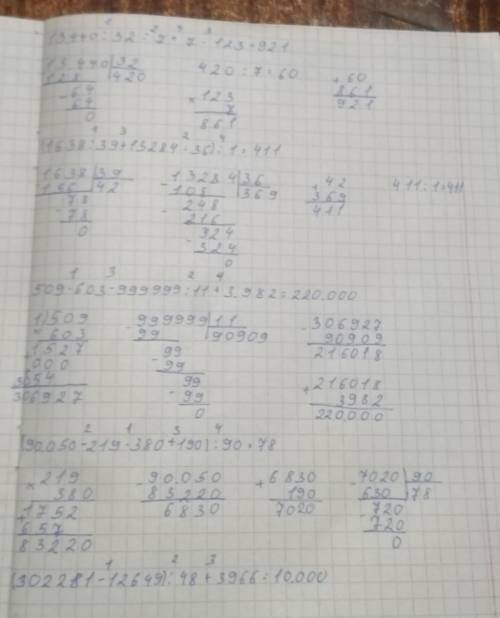 1 2 3 3
13440:32:7+7·123=921
13440 32
128 420
64
64
0
420:7=60
×123
7
861
+60
861
921
1 3 2 4
(1638:39+13284:36):1=411
1638 39
156 42
-78
78
0
-13284 36
108 369
-248
216
-324
324
0
+42
369
411
411:1=411
1 3 2 4
509·603-999999:11+3.982=220.000
1) 509
×603
+1527
000
3054
306927
-999999 11
99 90909
-99
99
-99
99
0
-306927
90909
216018
+216018
3982
220.000
2 1 3 4
(90.050-219·380+190):90=78
×219
380
+1752
657
83220
-90.050
83220
6830
+6830
190
7020
-7020 90
630 78
-720
720
0
1 2 3
(302281-12649):48+3966=10.000